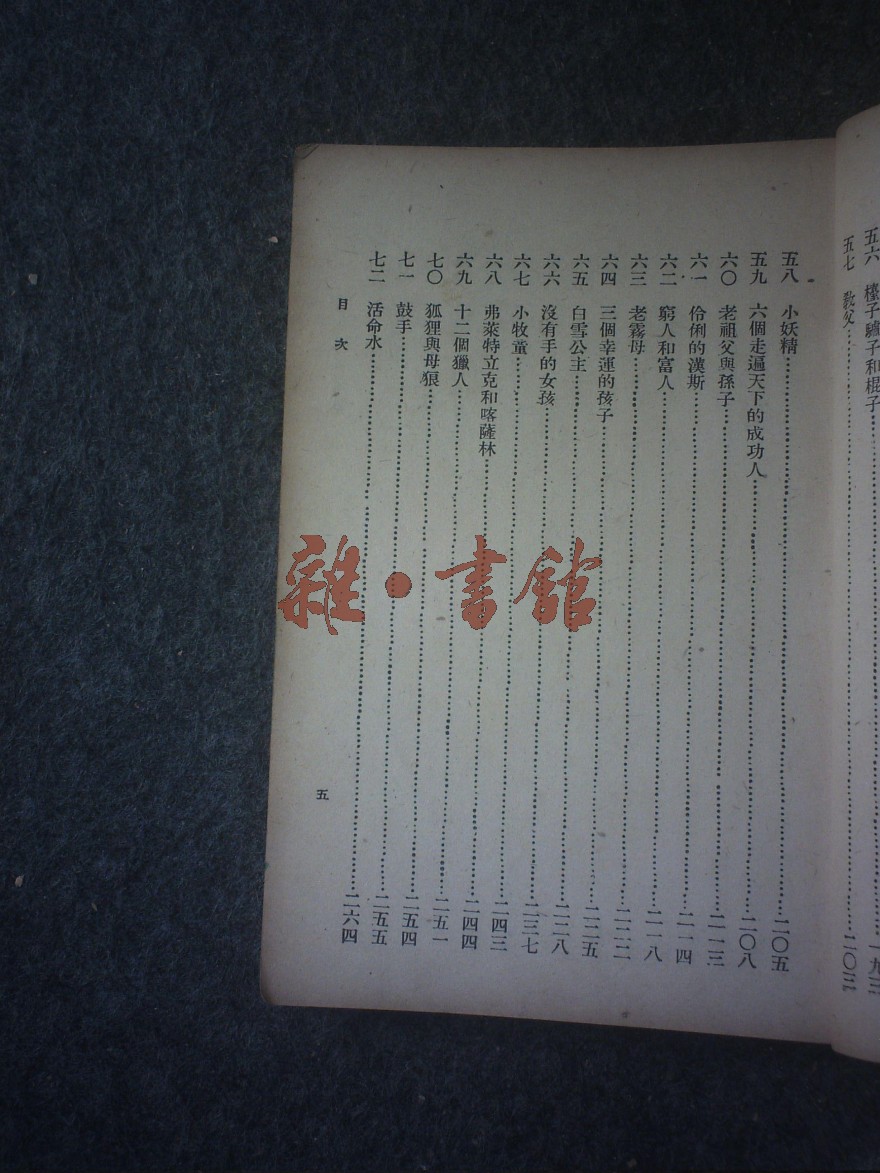 五六 檯子驢子和棍子……一九三
五七 教父……二〇三
五八 小妖精……二〇五
五九 六個走遍天下的成功人……二〇八
六〇 老祖父與孫子……二一三
六一 伶俐的漢斯……二一四
六二 窮人和富人……二一八
六三 老霧母……二二二
六四 三個幸運的孩子……二二五
六五 白雪公主……二二八
六六 沒有手的女孩……二三七
六七 小牧童……二四三
六八 弗萊特立克和喀薩林……二四四
六九 十二個獵人……二五一
七〇 狐狸與母狼……二五四
七一 鼓手……二五五
七二 活命水……二六四
目次
五
雜·書館